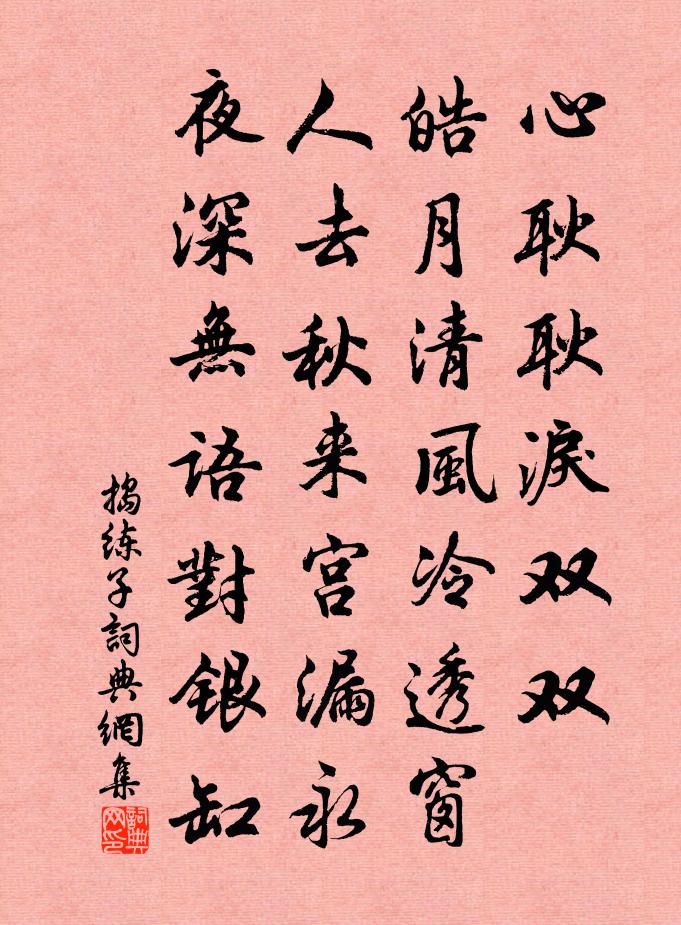 心耿耿淚双双
皓月清風冷透窗
人去秋来宫漏永
夜深無語對銀缸
搗练子詞典網集
詞典网印